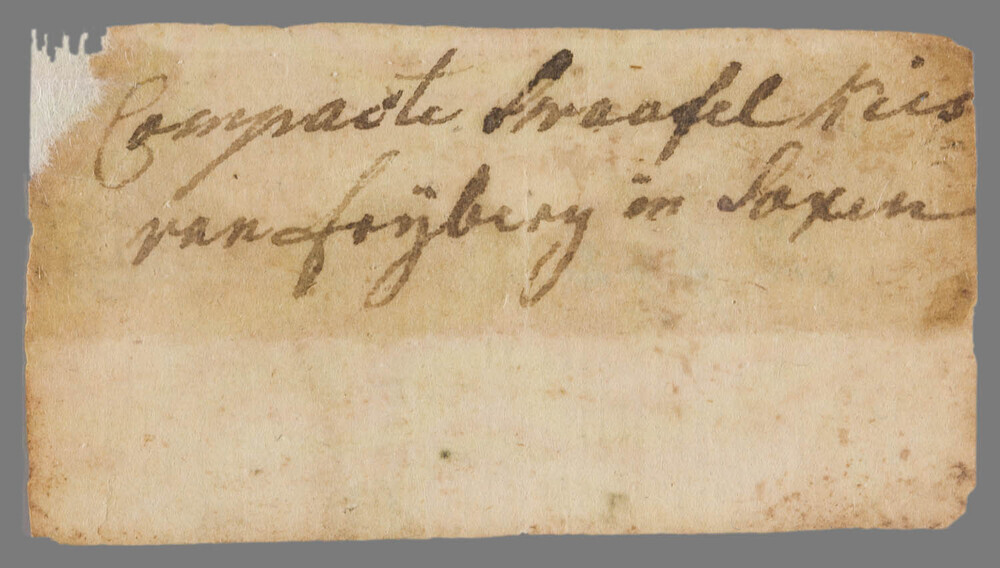 Compacte Swaafel Kies
van frÿberg in Saxen